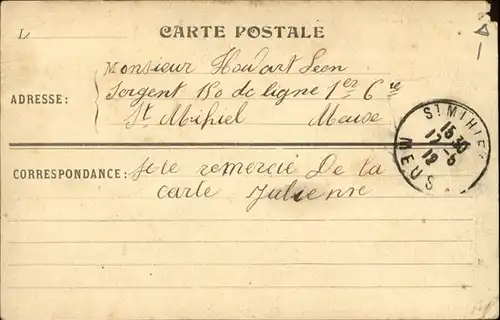 L
CARTE POSTALE
Monsieur Houdart Leon
ADRESSE: Sergent 150 de ligne 1er Cie
St Mihiel Meuse
CORRESPONDANCE: Je te remercie De ta
carte Julienne
ST MIHIEL
15 30
17 -6
12
MEUSE